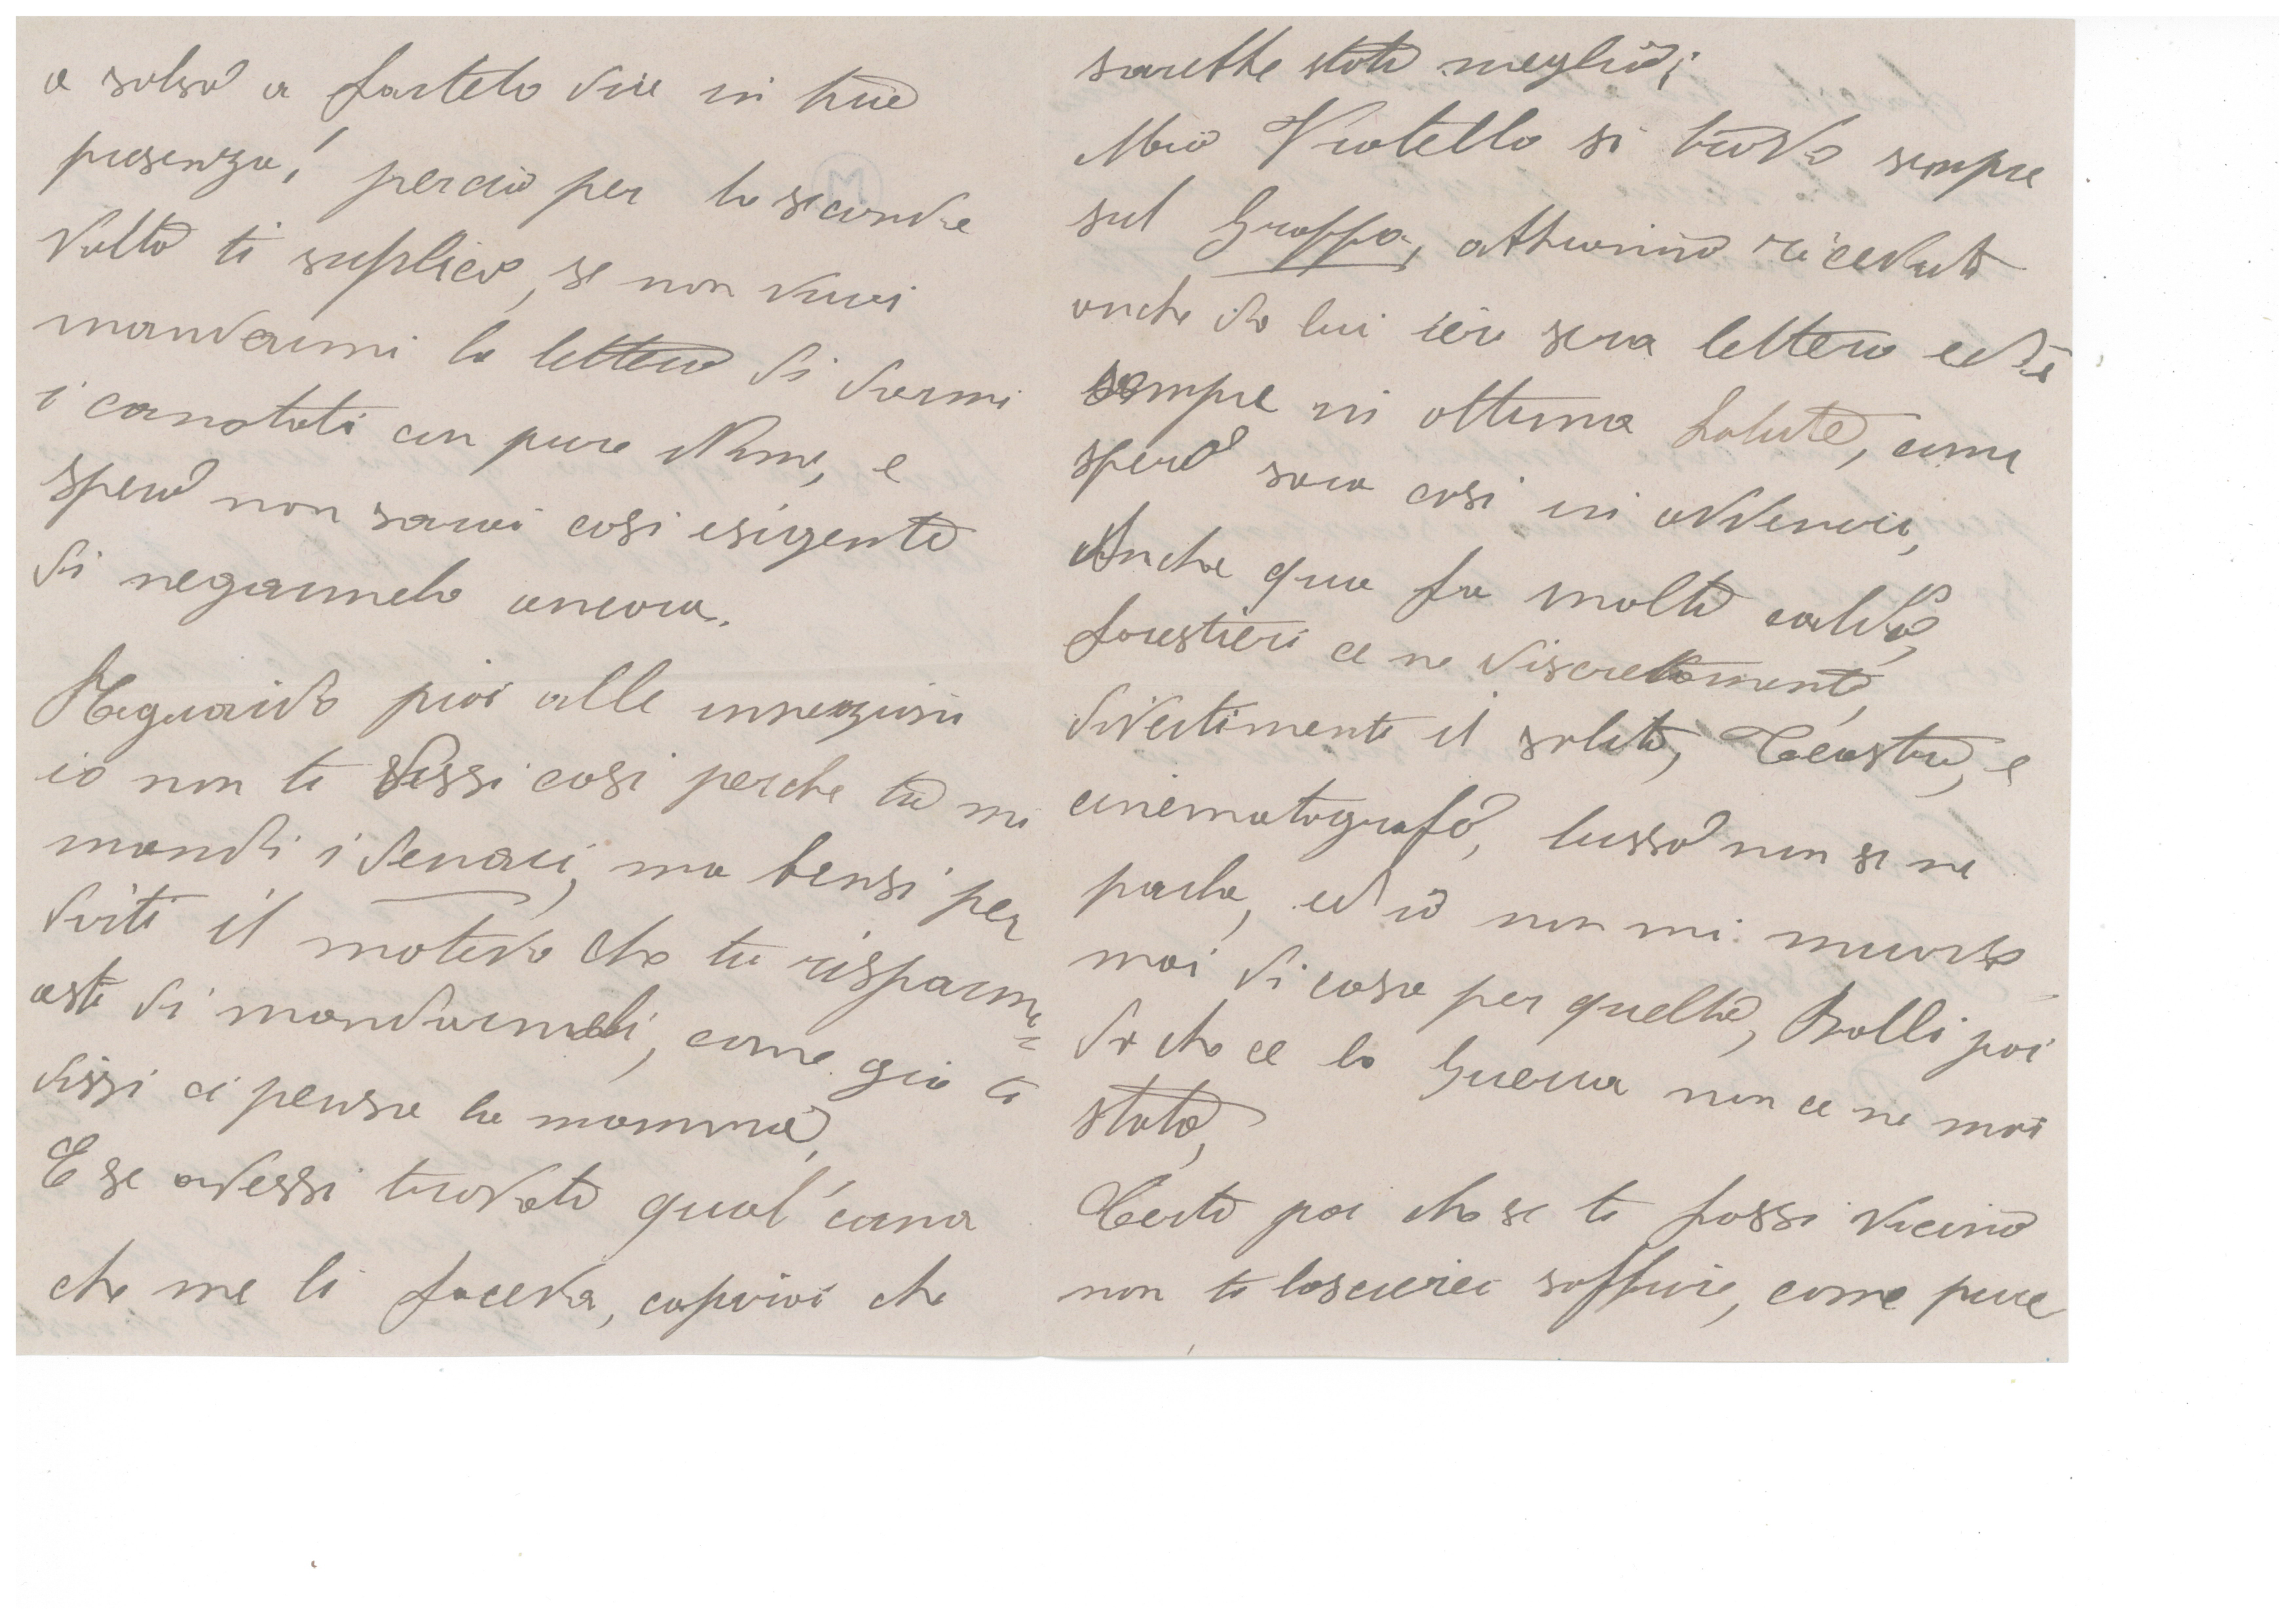 a solso a fartelo dire in tua
presenza! perciò per la seconda
Volta ti suplico, se non vuoi
mandarmi la lettera di darmi
i conotati con pure Nome, e
spero non sarai cosi esigente
di negarmelo ancora.
Reguardo poi alle innezioni
io non ti dissi cosi perche tu mi
mandi i denari, ma bensi per
dirti il motivo che tu risparmi=
asti di mandarmeli, come già ti
dissi ci pensa la mamma,
E se avessi trovato qual'cuna
che me li faceva, capirai che
sarebbe stato meglio;
Mio Fratello si trova sempre
sul Grappa, abbiamo ricevuto
anche da lui ieri sera lettera ed è
sempre in ottima Salute, come
spero sara cosi in avvenire,
Anche qua fa molto caldo,
forestieri ce ne discretamente,
divertimenti il solito, Teastro, e
cinematografo, lusso non se ne
parla, ed io non mi muovo
mai di casa per quello, Balli poi
da che ce la Guerra non ce ne mai
stato,
Certo poi che se ti fossi vicino
non ti lascierei soffrire, come pure